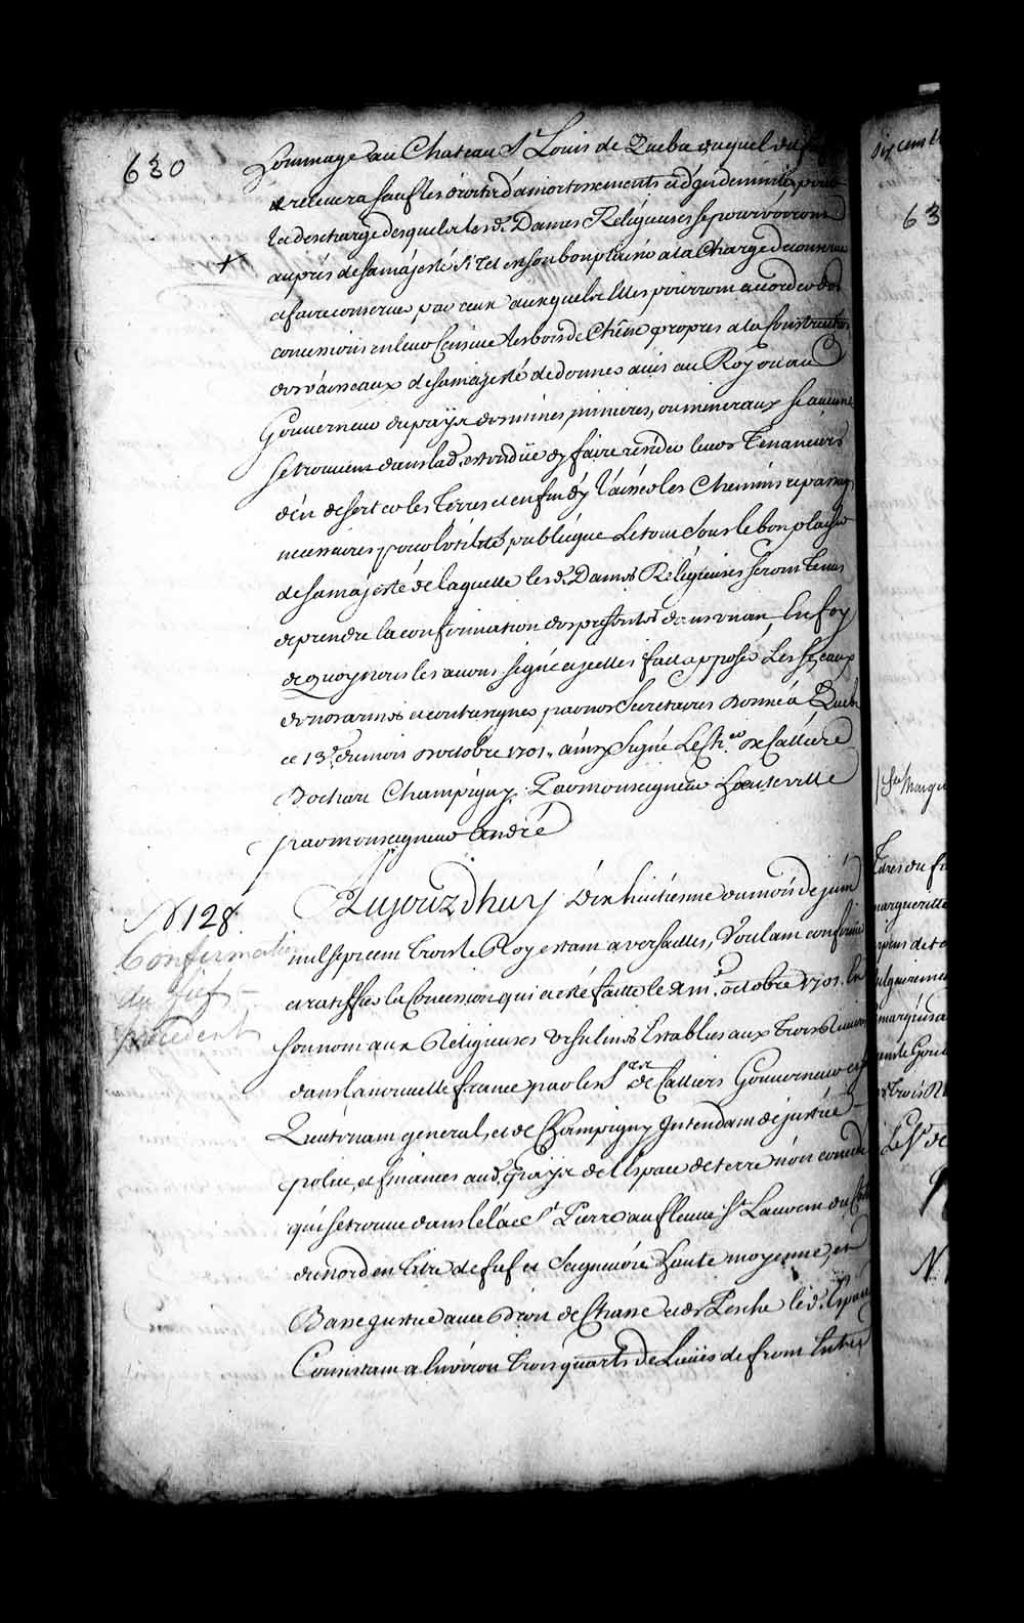 630
hommage au Chateau St Louis de Quebec duquel du
il relevera sauf les droits d'amortissements et d'indemnités pour
la descharge desquels les d. Dames Religieuses se pourvoiront
aupres de sa majesté si tel est son bon plaisir a la Charge de conserver
et faire conserver par ceux auxquels Elles pourront accorder des
concessions en leur Censive les bois de Chêne propres a la Construction
des vaisseaux de sa majesté de donner avis au Roy ou au
Gouverneur du pays des mines, minieres, ou mineraux si aucuns
se trouvent dans lad. estendüe d'y faire résider leurs Tenanciers
d'en deserter les Terres et enfin d'y laisser les Chemins et passages
necessaires pour l'utilité publique Le tout sous le bon plaisir
de sa majesté de laquelle les d. Dames Religieuses seront Tenus
de prendre la confirmation des presentes dans un an, En foy
de quoy nous les avons signé a icelles fait apposé Les sceaux
de nos armes et contresignes par nos Secretaires Donné a Quebec
ce 13e du mois d'octobre 1701. ainsy Signé Le Cher de Calliere
Bochart Champigny, Par monseigneur Hauteville
par monseigneur André
N 128.
Confirmation
du fief
precedent
Aujourdhuy dix huitieme du mois de juin
mil sept cent trois le Roy estant a versailles, Voulant confirmer
et ratiffier la Concession qui a esté faitte le d. m. octobre 1701. En
son nom aux Religieuses Ursulines Establies aux Trois Rivieres
dans la nouvelle france par les Srs de Calliers Gouverneur et
Lieutenant general, et de Champigny Intendant de justice
police, et finances aud. pays de l'Espace de terre non concedé
qui se trouve dans le lac St Pierre au fleuve St Laurent du costé
du nord en titre de fief et Seigneurie haute moyenne, et
Basse justice avec droit de Chasse et de Pesche led. Espace
Consistant a Environ trois quarts de Lieües de front Entre